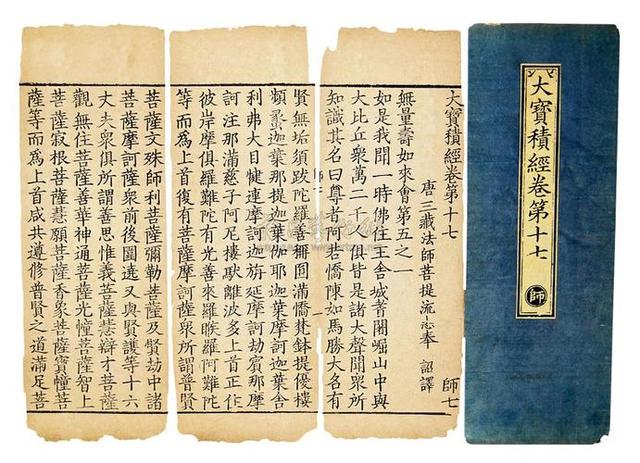 大寶積經卷第十七
師
大寶積經卷第十七 師七
唐三藏法師菩提流志奉 詔譯
無量壽如來會第五之一
如是我聞一時佛住王舍城耆闍崛山中與
大比丘衆萬二千人俱皆是諸大聲聞衆所
知識其名曰尊者阿若憍陳如馬勝大名有
賢無垢須跋陀羅善稱圓滿憍梵鉢提優樓
頻蠡迦葉那提迦葉伽耶迦葉摩訶迦葉舍
利弗大目犍連摩訶迦旃延摩訶劫賓那摩
訶注那滿慈子阿尼樓馱離波多上首王住
彼岸摩俱羅難陀有光善來羅睺羅阿難陀
等而爲上首復有菩薩摩訶薩衆所謂普賢
菩薩文殊師利菩薩彌勒菩薩及賢劫中諸
菩薩摩訶薩衆前後圍遶又與賢護等十六
丈夫衆俱所謂善思惟義菩薩慧辯才菩薩
觀無住菩薩善華神通菩薩光幢菩薩智上
菩薩寂根菩薩慧願菩薩香象菩薩寶幢菩
薩等而爲上首咸共遵修普賢之道滿足菩